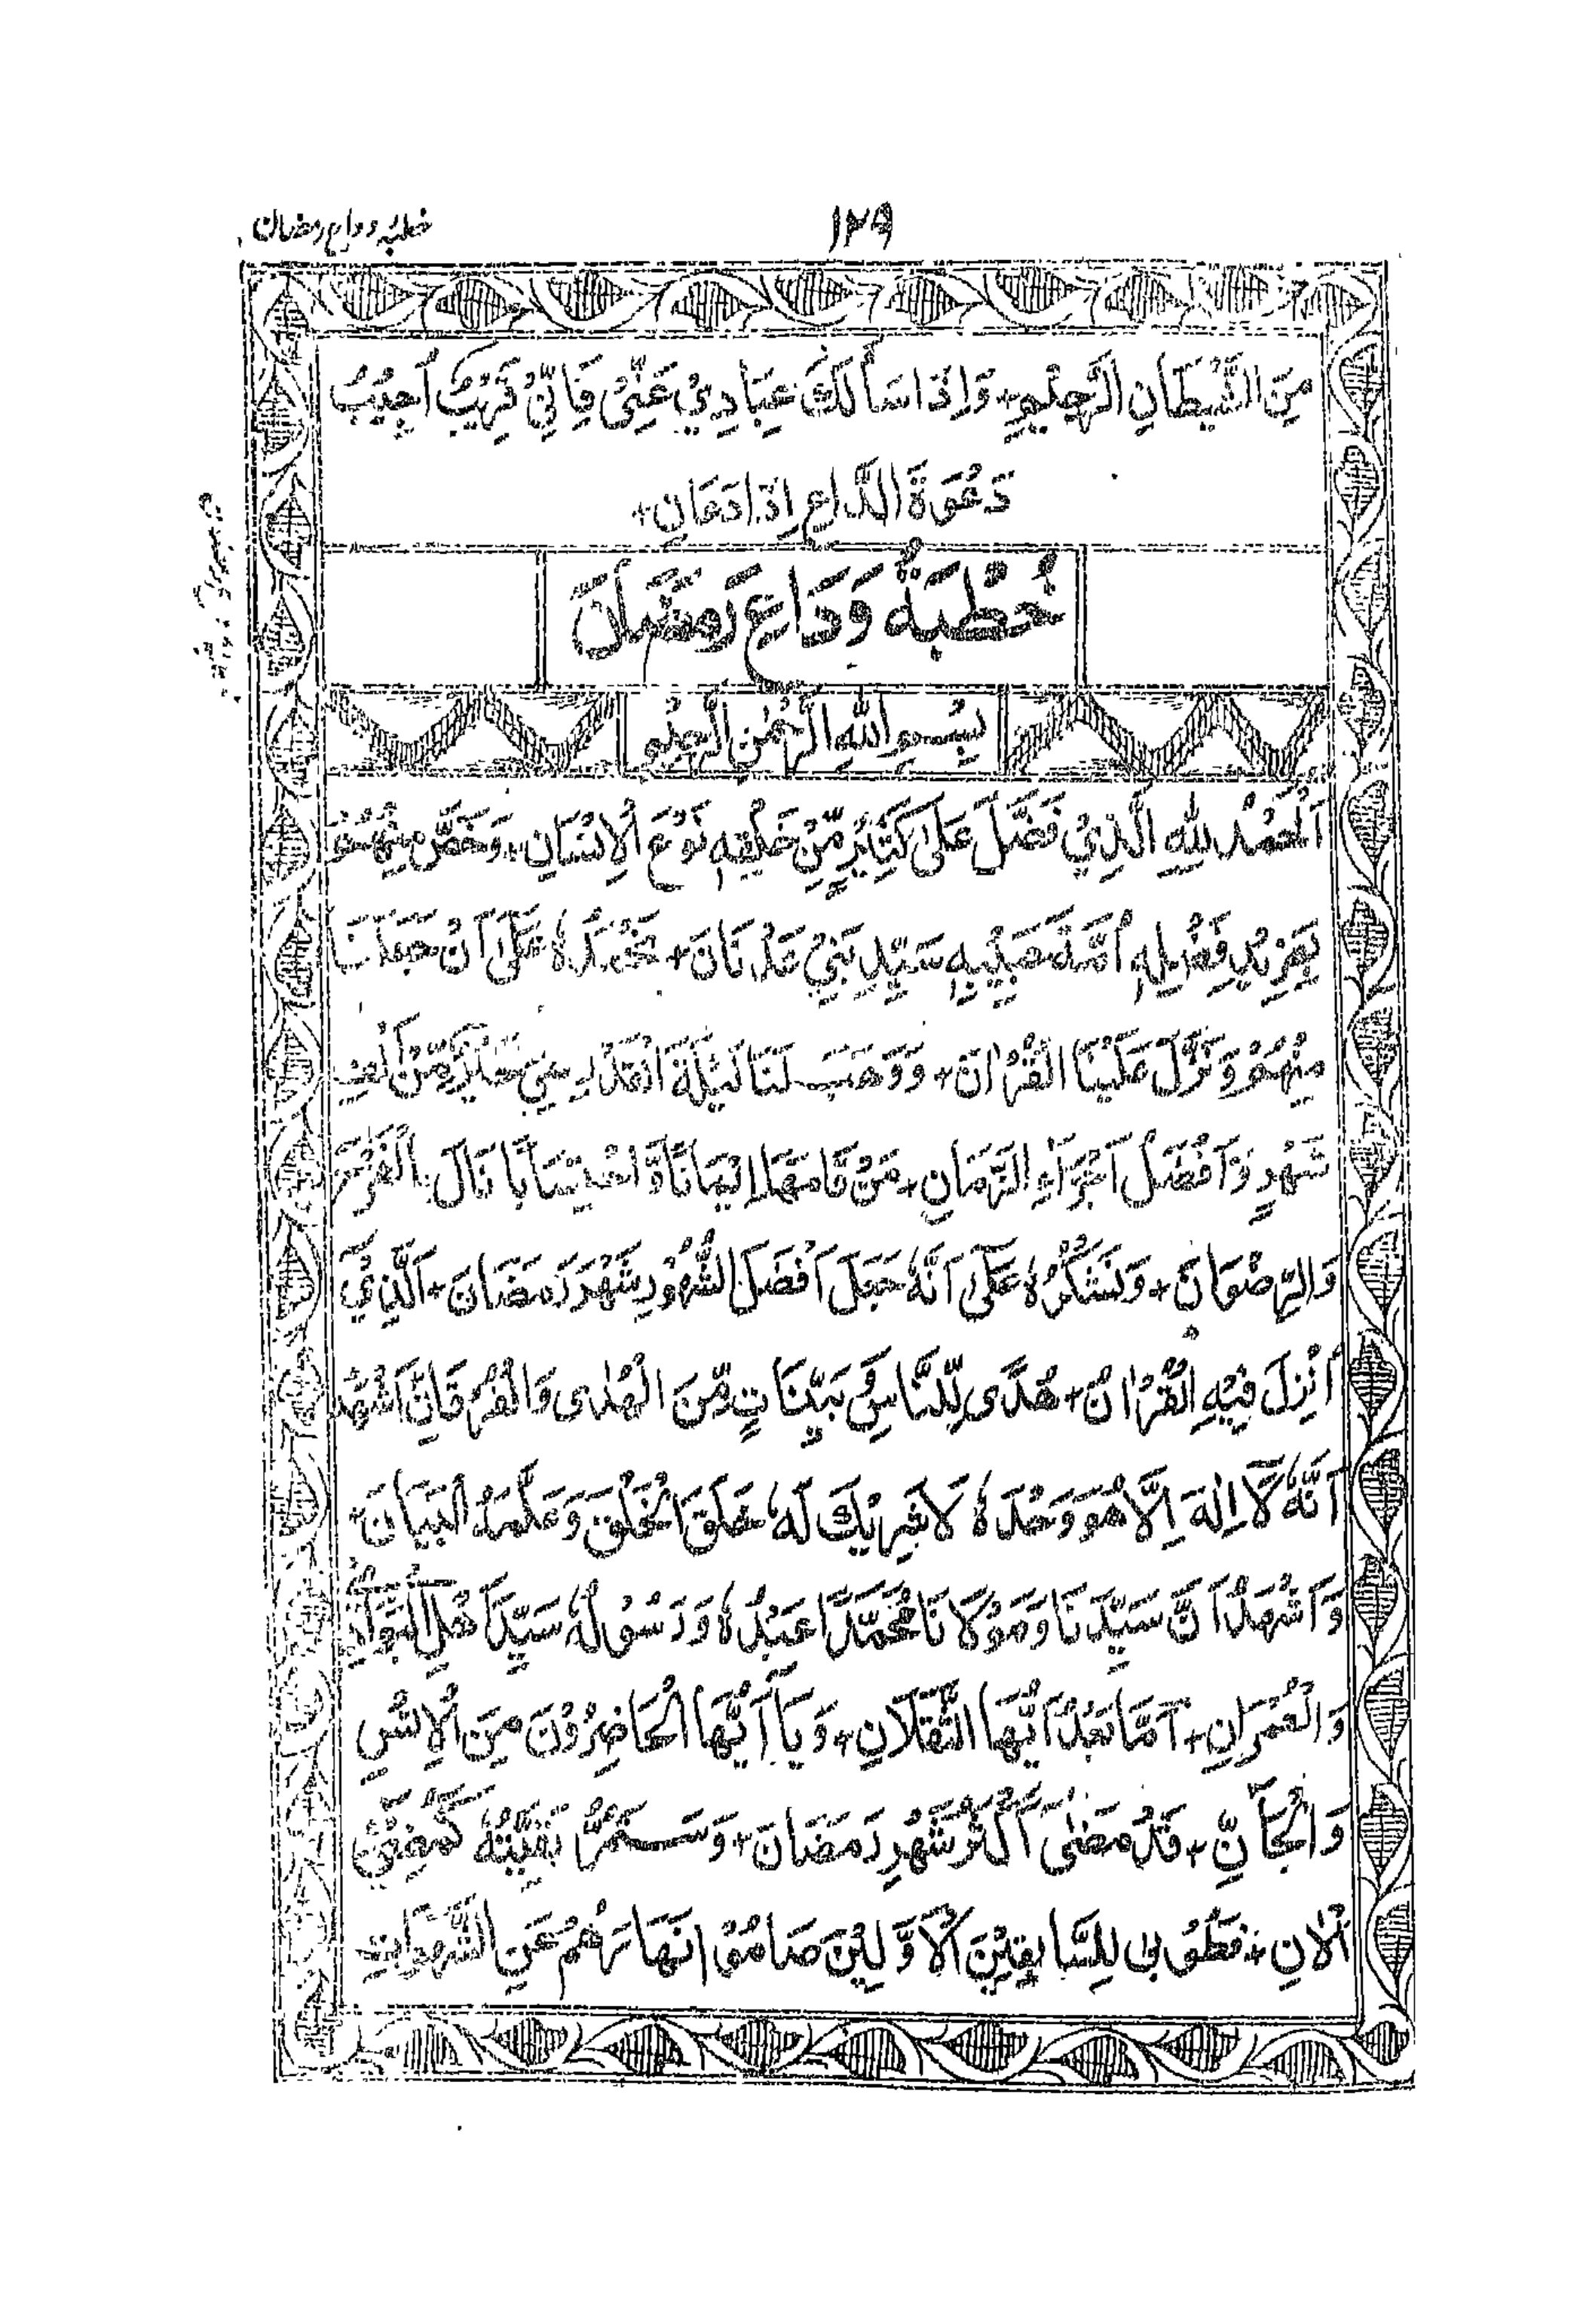 ١٢٩
خطبۂ وداع رمضان
مِنَ الشَّيْطَانِ الرَّجِيْمِ + وَاِذَا سَأَلَكَ عِبَادِيْ عَنِّيْ فَاِنِّيْ قَرِيْبٌ اُجِيْبُ
دَعْوَةَ الدَّاعِ اِذَا دَعَانِ +
خُطْبَةُ وَدَاعِ رَمَضَانَ
بِسْمِ اللهِ الرَّحْمٰنِ الرَّحِيْمِ
اَلْحَمْدُ لِلهِ الَّذِيْ فَضَّلَ عَلٰى كَثِيْرٍ مِّنْ خَلْقِهٖ نَوْعَ الْاِنْسَانِ + وَخَصَّ مِنْهُمْ
بِمَزِيْدِ فَضْلِهٖ اُمَّةَ حَبِيْبِهٖ سَيِّدِ بَنِيْ عَدْنَانَ + نَحْمَدُهٗ عَلٰى اَنْ جَعَلَنَا
مِنْهُمْ وَنَزَّلَ عَلَيْنَا الْقُرْاٰنَ + وَوَهَبَ لَنَا لَيْلَةَ الْقَدْرِ هِيَ خَيْرٌ مِّنْ اَلْفِ
شَهْرٍ وَاَفْضَلُ اَجْزَاءِ الزَّمَانِ + مَنْ قَامَهَا اِيْمَانًا وَّاحْتِسَابًا نَالَ الْغُفْرَانَ
وَالرِّضْوَانَ + وَنَشْكُرُهٗ عَلٰى اَنَّهٗ جَعَلَ اَفْضَلَ الشُّهُوْرِ شَهْرَ رَمَضَانَ + اَلَّذِيْ
اُنْزِلَ فِيْهِ الْقُرْاٰنُ + هُدًى لِّلنَّاسِ وَبَيِّنَاتٍ مِّنَ الْهُدٰى وَالْفُرْقَانِ اَشْهَدُ
اَنَّهٗ لَا اِلٰهَ اِلَّا هُوَ وَحْدَهٗ لَا شَرِيْكَ لَهٗ خَلَقَ الْخَلْقَ وَعَلَّمَهُ الْبَيَانَ +
وَاَشْهَدُ اَنَّ سَيِّدَنَا وَمَوْلَانَا مُحَمَّدًا عَبْدُهٗ وَرَسُوْلُهٗ سَيِّدُ اَهْلِ الْبَوَادِيْ
وَالْعُمْرَانِ + اَمَّا بَعْدُ اَيُّهَا الثَّقَلَانِ + وَيَا اَيُّهَا الْحَاضِرُوْنَ مِنَ الْاِنْسِ
وَالْجَانِّ + قَدْ مَضٰى اَكْثَرُ شَهْرِ رَمَضَانَ + وَسَتَمُرُّ بَقِيَّتُهٗ كَمُضِيِّ
الْاٰنِ + فَطُوْبٰى لِلسَّابِقِيْنَ الْاَوَّلِيْنَ صَامُوْا نَهَارَهُمْ عَنِ الشَّهَوَاتِ